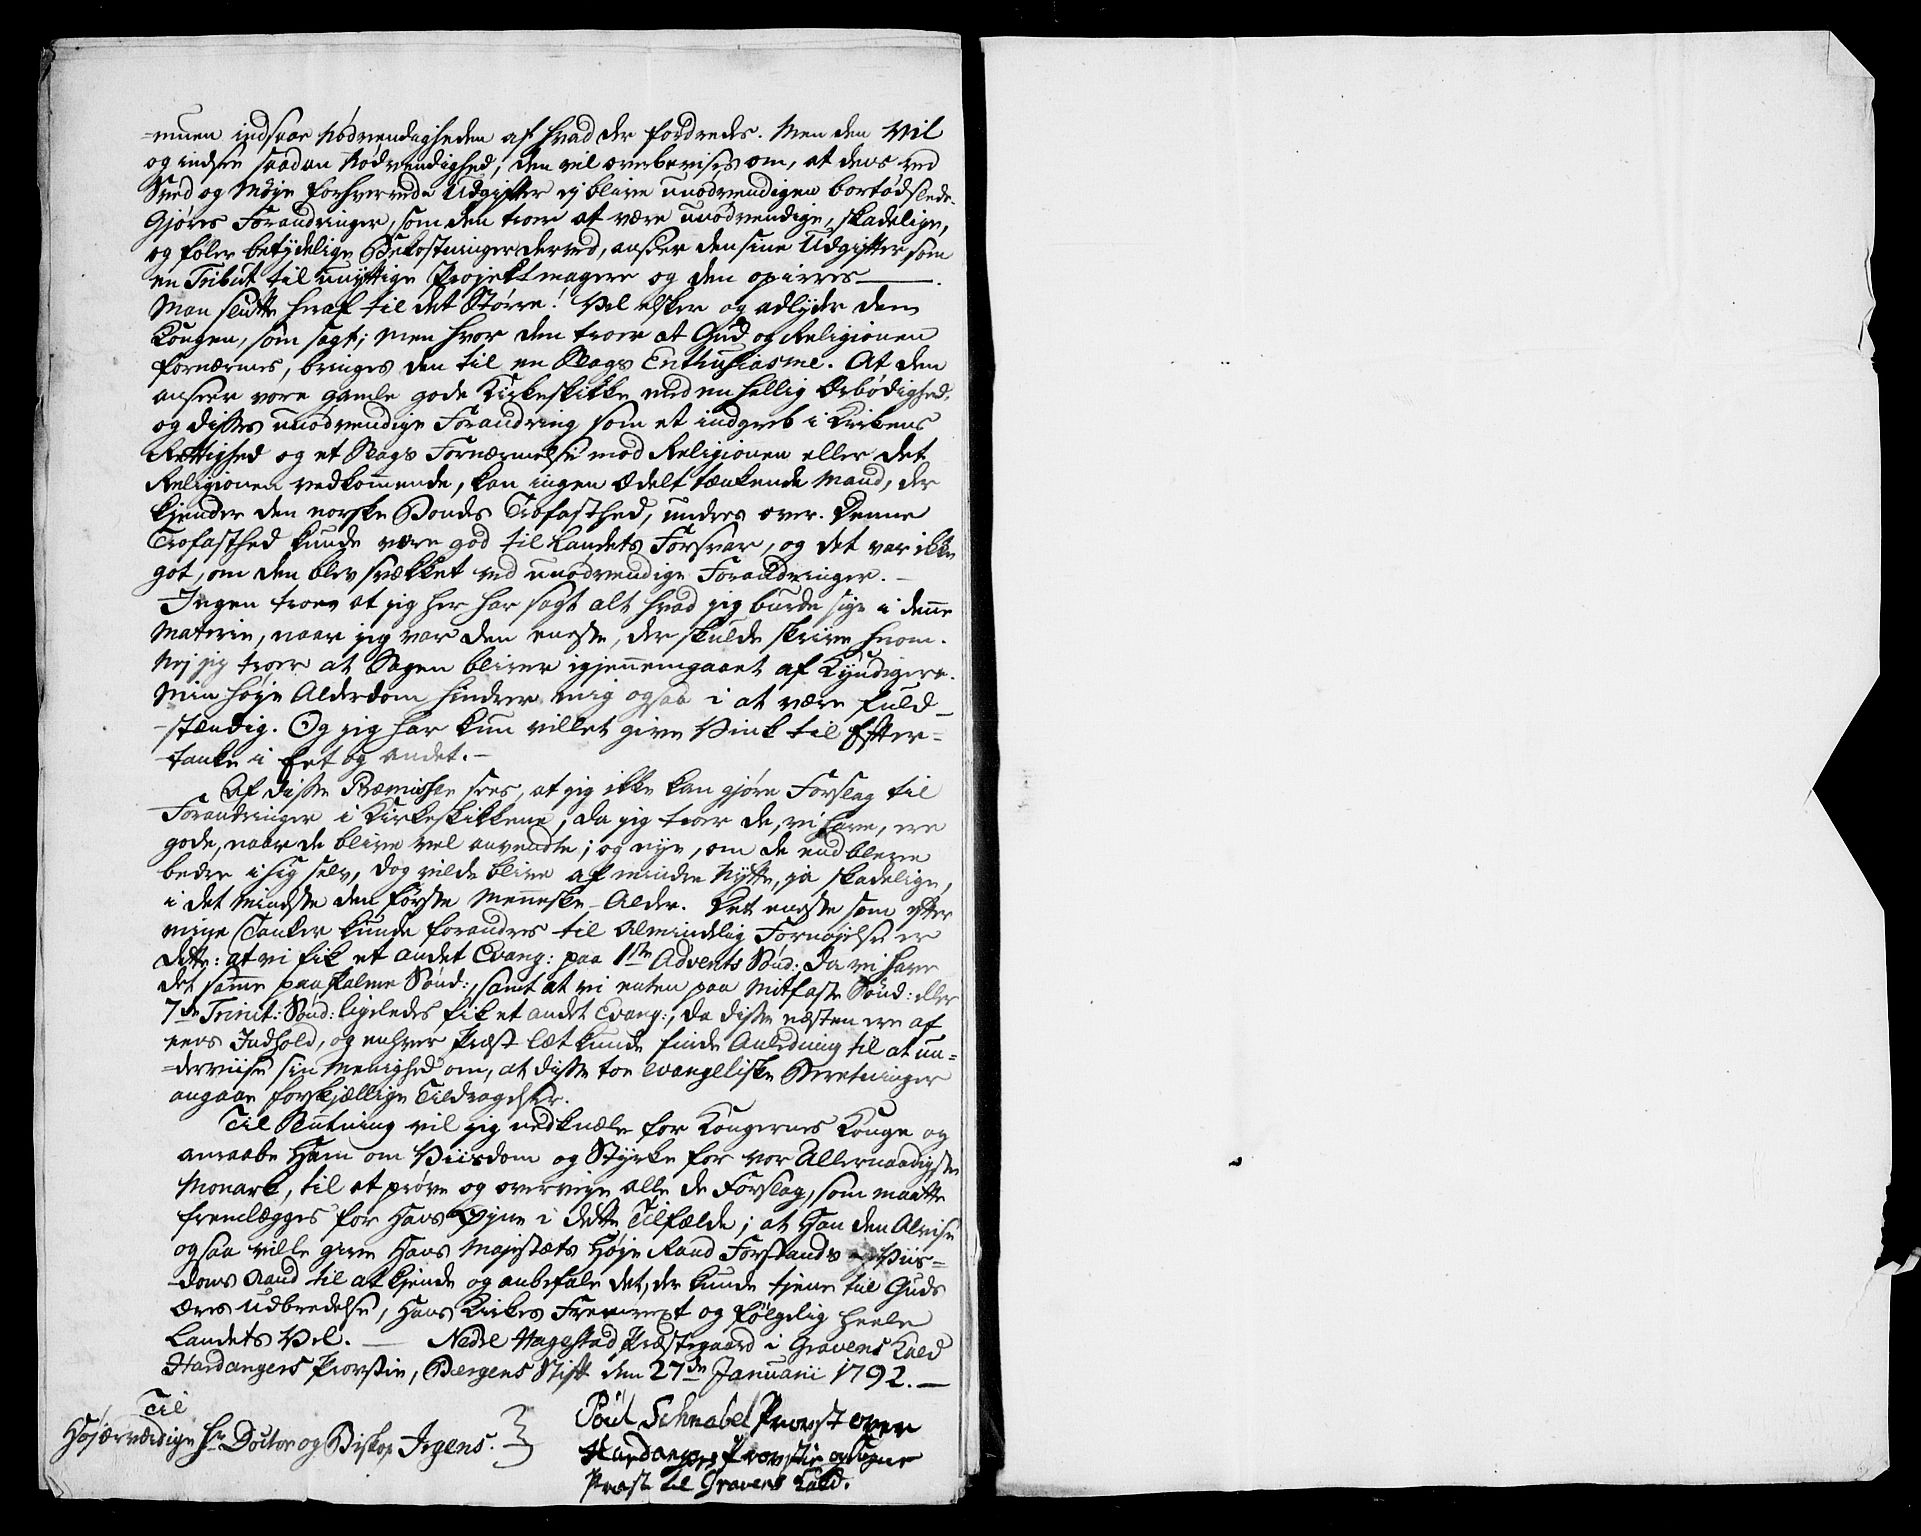 =muen indsaae Nødvendagheden af hvad der fordredes. Men den vil
og indsee saadan Nødvendighed; den vil overbevises om, at dens ved
Sved og Møje forhvervede Udgifter ej blive unødvendigen bortødslede.
Gjøres Forandringer, som den troer at være unødvendige, skadelige,
og føler betydelige Bekostninger derved, anseer den sine Udgifter som
en Tribut til unyttige Projektmagere og den opirres —.
Man slutte heraf til det Større! Vel elsker og adlyder den
Kongen, som sagt; men hvor den troer at Gud og Religionen
fornærmes, bringes den til en Slags Enthusiasme. At den
anseer vore gamle gode Kirkeskikke med en hellig Ærbødighed,
og disses unødvendige Forandring som et indgreb i Kirkens
Rettighed og et Slags Fornærmelse mod Religionen eller det
Religionen vedkommende, kan ingen ædelt tænkende Mand, der
kjender den norske Bondes Trofasthed, undres over. Denne
Trofasthed kunde være god til Landets Forsvar, og det var ikke
got, om den blev svækket ved unødvendige Forandringer. —
Ingen troer at jeg her har sagt alt hvad jeg burde sige i denne
Materie, naar jeg var den eneste, der skulde skrive herom.
Nej jeg troer at Sagen bliver igjennemgaaet af Kyndigere.
Min høje Alderdom hindrer mig ogsaa i at være fuld-
-stændig. Og jeg har kun villet give Vink til Efter=
-tanke i Eet og andet. —
Af disse Præmisser sees, at jeg ikke kan gjøre Forslag til
Forandringer i Kirkeskikkene, da jeg troer de, vi have, ere
gode, naar de blive vel anvendte; og nye, om de end bleve
bedre i sig selv, dog vilde blive af mindre Nytte, ja skadelige,
i det mindste den første Menneske-Alder. Det eneste som efter
mine Tanker kunde forandres til almindelig Fornøjelse er
dette: at vi fik et andet Evang: paa 1ste Advents Sønd:, da vi have
det samme paa Palme Sønd:, samt at vi enten paa Mitfaste Sønd: eller
7de Trinit: Sønd: ligeledes fik et andet Evang:, da disse næsten ere af
eens Indhold, og enhver Præst let kunde finde Anledning til at un=
=derviise sin Menighed om, at disse toe evangeliske Beretninger
angaae forskjællige Tildragelser.
Til Slutning vil jeg nedknæle for Kongernes Konge og
anraabe Ham om Viisdom og Styrke for vor Allernaadigste
Monark, til at prøve og overveje alle de Forslag, som maatte
fremlægges for Hans Øjne i dette Tilfælde; at Han den Alvise
ogsaa ville give Hans Majestæts Høje Raad Forstands og Viis=
-doms Aand til at kjende og anbefale det, der kunde tjene til Guds
Æres Udbredelse, Hans Kirkes Fremvext og følgelig heele
Landets Vel. — Nedre Haggestad Præstegaard i Gravens Kald
Hardangers Provstie, Bergens Stift den 27de Januarii 1792. —
Til
Højærværdige Hr Doctor og Biskop Irgens.
Poul Schnabel Provst over
Hardangers Provstie og Sogne
Præst til Gravens Kald.